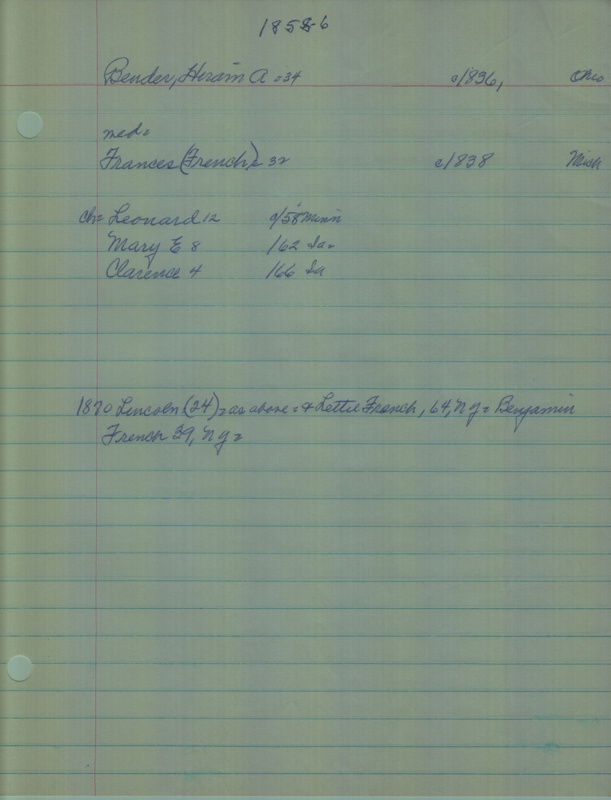 1858-6
Bender, Hiram A = 34 c/1836, Ohio
med=
Frances (French)= 32 c/1838 Mich
ch= Leonard 12 c/58 Minn
Mary E 8 /62 Ia=
Clarence 4 /66 Ia
1870 Lincoln (24) = as above = & Lettie French, 64, NY = Benjamin
French 39, NY =